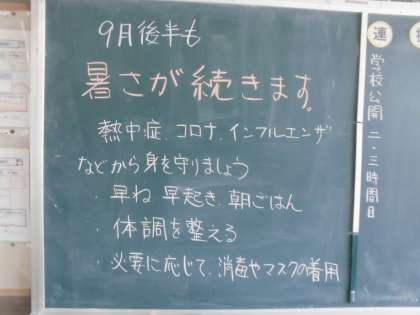 9月後半も
暑さが続きます。
熱中症、コロナ、インフルエンザ
などから身を守りましょう
・早ね 早起き 朝ごはん
・体調を整える
・必要に応じて、消毒やマスクの着用
連
学校公開 二、三時間目